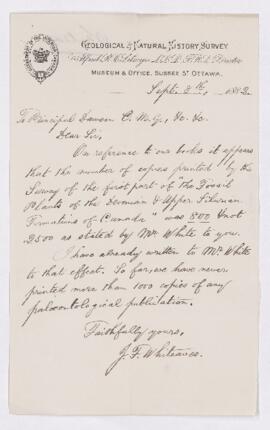 GEOLOGICAL & NATURAL HISTORY SURVEY.
Alfred R. C. Selwyn L.L.D. F.R.S. Director
MUSEUM & OFFICE, SUSSEX ST OTTAWA.
Sept. 8th, 1882.
To Principal Dawson C.M.G., &c. &c.
Dear Sir,
On reference to our books it appears
that the number of copies printed by the
Survey of the first part of "The Fossil
Plants of the Devonian & Upper Silurian
Formations of Canada" was 800 & not
2500 as stated by Mr. White to you.
I have already written to Mr. White
to that effect. So far, we have never
printed more than 1000 copies of any
palæontological publication.
Faithfully yours,
J. F. Whiteaves.